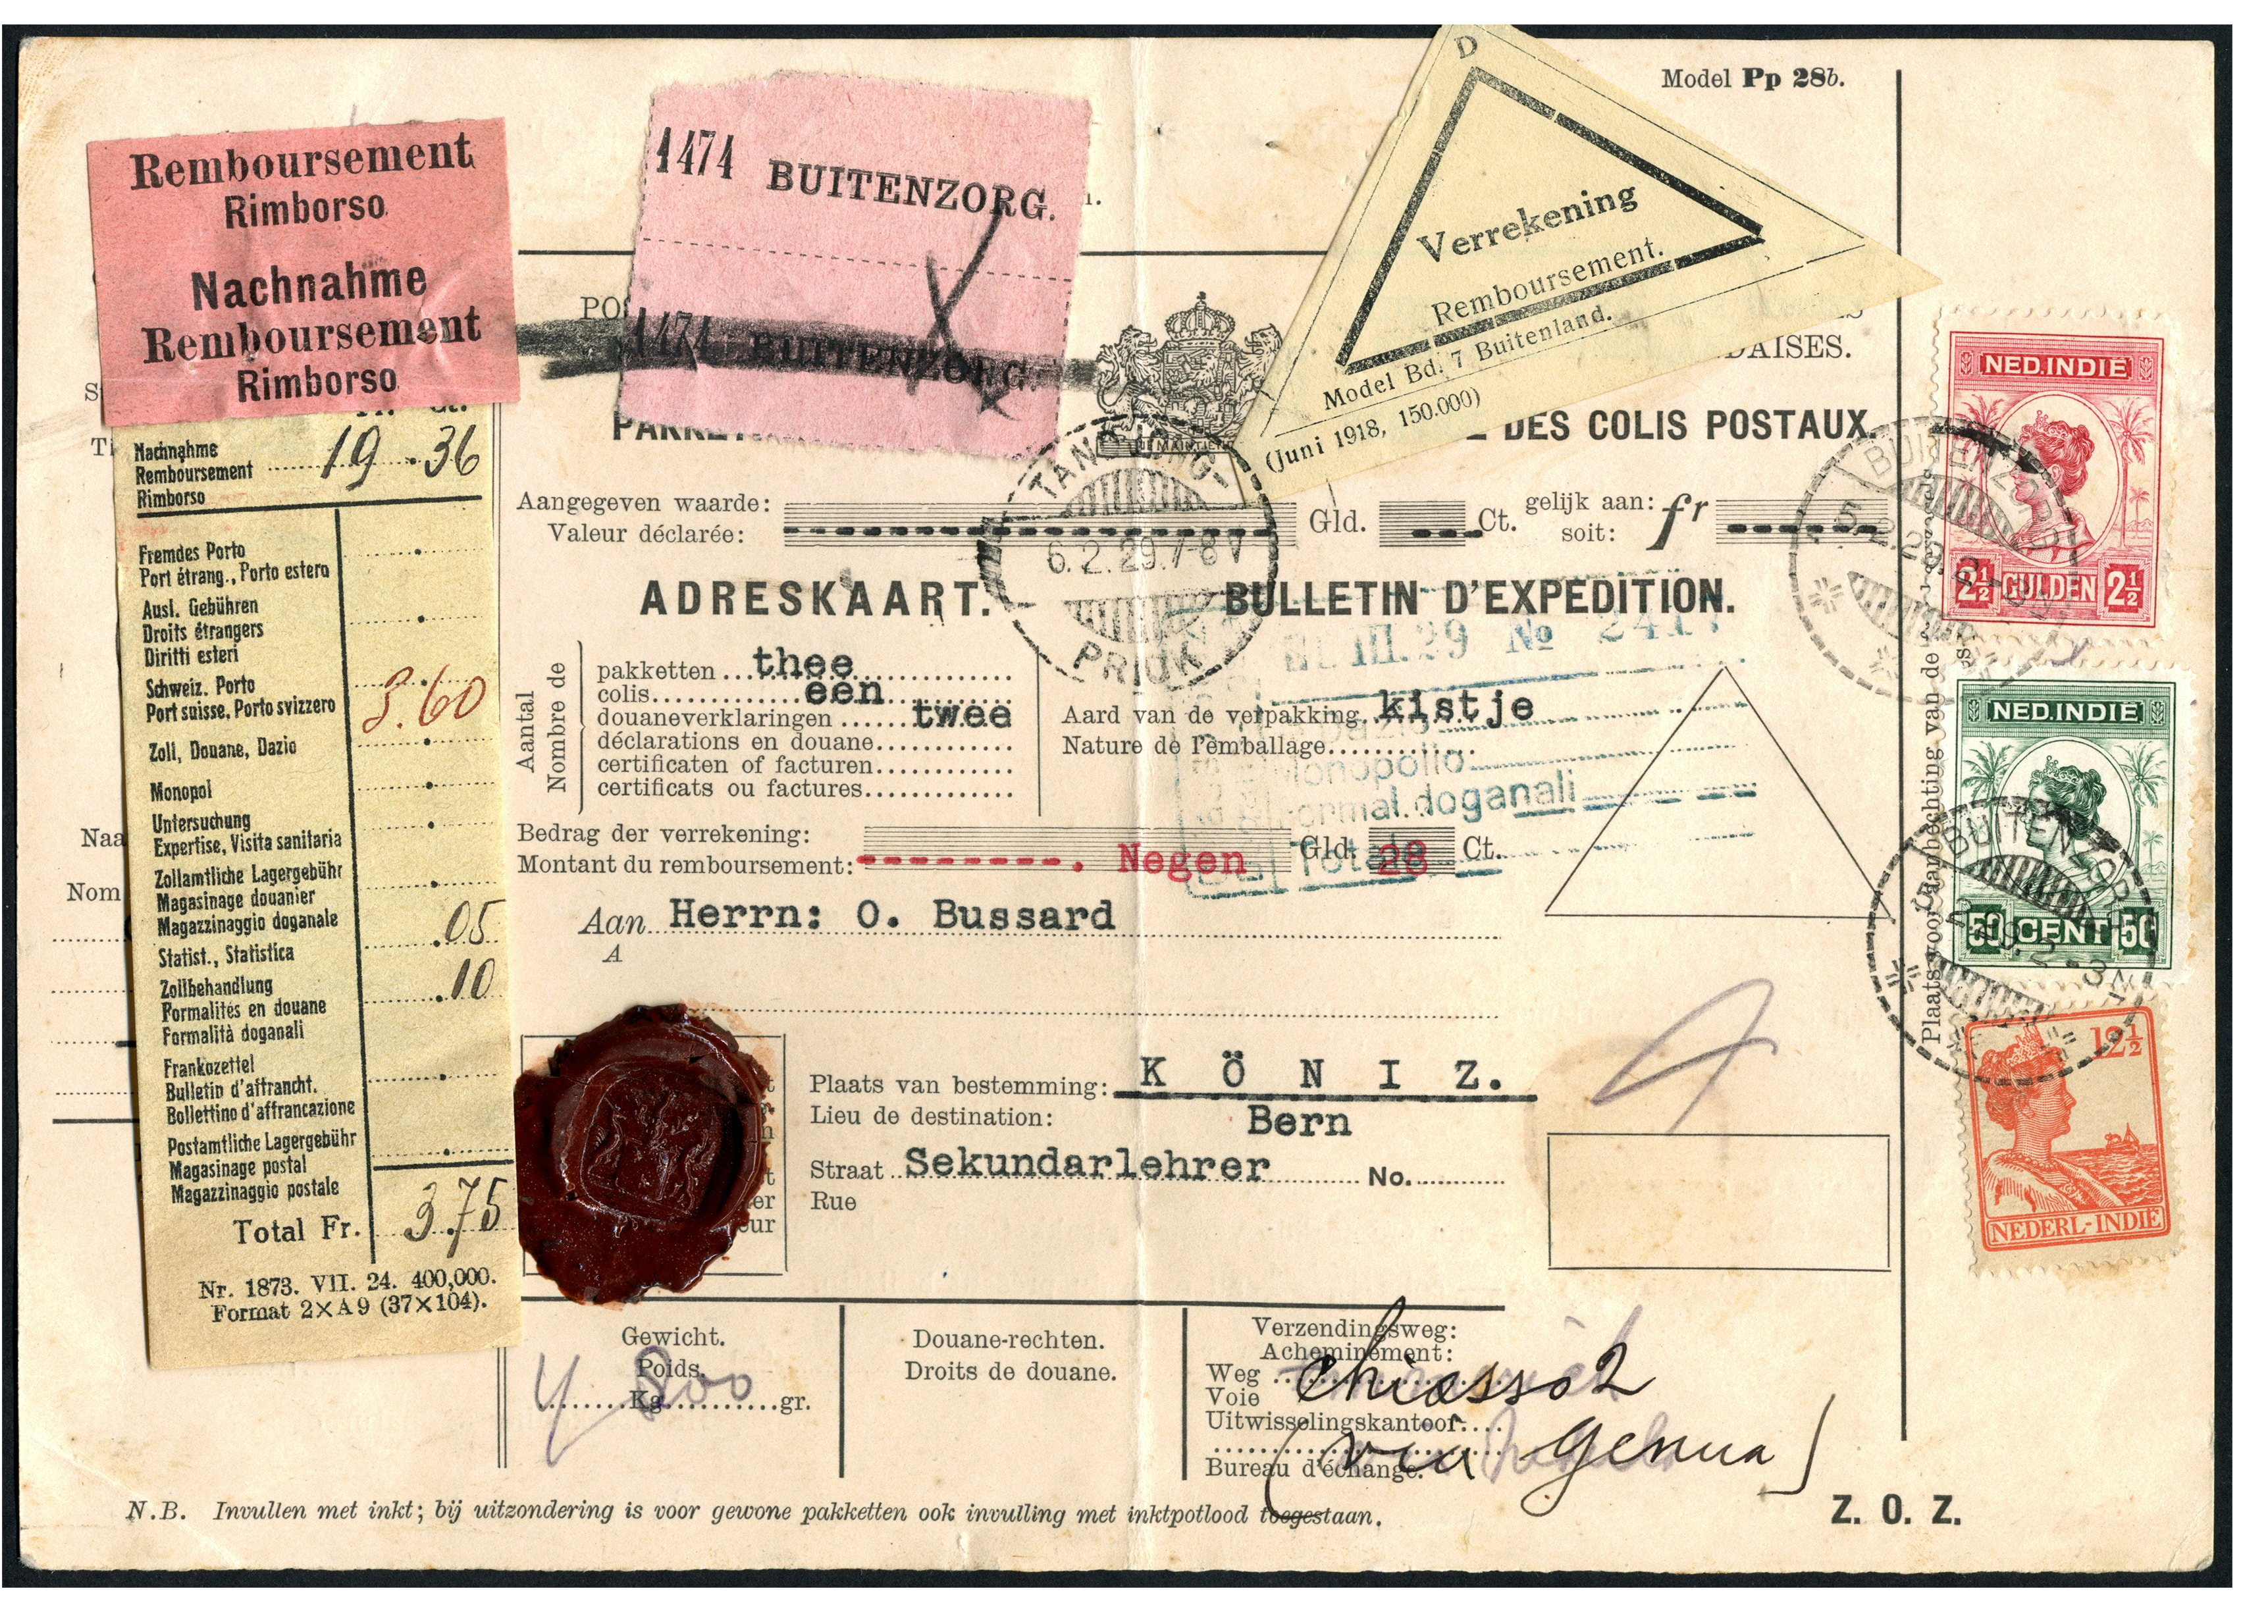 Model Pp 28b.
Remboursement
Rimborso
Nachnahme
Remboursement
Rimborso
1474 BUITENZORG.
1474 BUITENZORG.
D
Verrekening
Remboursement.
Model Bd. 7 Buitenland.
(Juni 1918, 150.000)
DAISES.
DES COLIS POSTAUX.
Nachnahme
Remboursement 19.36
Rimborso
Fremdes Porto
Port étrang., Porto estero
Ausl. Gebühren
Droits étrangers
Diritti esteri
Schweiz. Porto
Port suisse, Porto svizzero 3.60
Zoll, Douane, Dazio
Monopol
Untersuchung
Expertise, Visita sanitaria
Zollamtliche Lagergebühr
Magasinage douanier
Magazzinaggio doganale
Statist., Statistica .05
Zollbehandlung
Formalités en douane .10
Formalità doganali
Frankozettel
Bulletin d'affrancht.
Bollettino d'affrancazione
Postamtliche Lagergebühr
Magasinage postal
Magazzinaggio postale
Total Fr. 3.75
Nr. 1873. VII. 24. 400,000.
Format 2×A9 (37×104).
Aangegeven waarde:
Valeur déclarée: Gld. Ct. gelijk aan:
soit: fr
TANDJONG-
6.2.29.7-8V
PRIOK
ADRESKAART. BULLETIN D'EXPEDITION.
III.29 No
Aantal
Nombre de
pakketten thee
colis een
douaneverklaringen twee
déclarations en douane
certificaten of facturen
certificats ou factures
Aard van de verpakking kistje
Nature de l'emballage
Monopolio
Formal. doganali
Totale
Bedrag der verrekening:
Montant du remboursement: Negen Gld. 28 Ct.
Aan Herrn: O. Bussard
A
Plaats van bestemming: KÖNIZ.
Lieu de destination: Bern
Straat Sekundarlehrer No.
Rue
Gewicht.
Poids.
4 Kg 800 gr.
Douane-rechten.
Droits de douane.
Verzendingsweg:
Acheminement:
Weg
Voie Chiasso 2
Uitwisselingskantoor
Bureau d'échange. (via Genua)
N.B. Invullen met inkt; bij uitzondering is voor gewone pakketten ook invulling met inktpotlood toegestaan.
Z. O. Z.
NED. INDIË
2½ GULDEN 2½
BUITENZORG
NED. INDIË
50 CENT 50
BUITENZORG
12½
NEDERL-INDIË